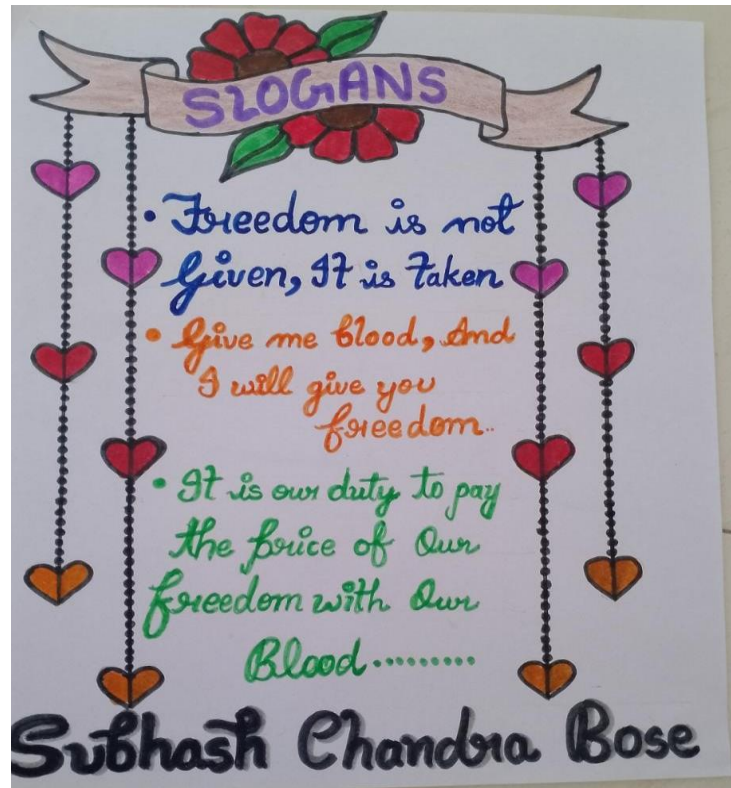 SLOGANS
• Freedom is not
Given, It is Taken
• Give me blood, And
I will give you
freedom..
• It is our duty to pay
the price of Our
freedom with Our
Blood.........
Subhash Chandra Bose